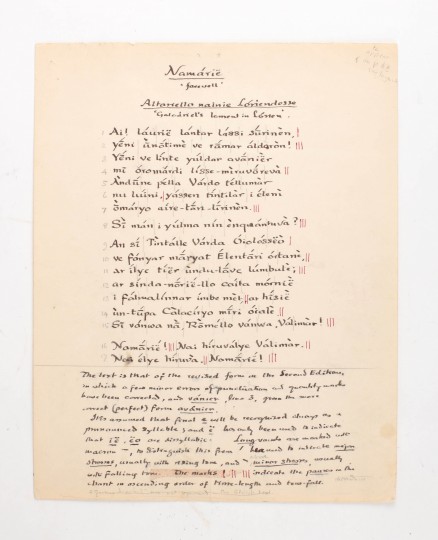 Namárië
'farewell'
Altariello nainië Lóriendosse
'Galadriel's lament in Lórien'.
1 Ai! laurië lantar lassi sūrinen,
2 yēni ūnōtimë ve rāmar aldaron!
3 Yēni ve lintë yuldar avāniër
4 mi oromardi lisse-miruvōreva
5 Andūnë pella Vardo tellumar
6 nu luini, yassen tintilar i eleni
7 ōmaryo aire-tāri-līrinen.
8 Sī man i yulma nin enquantuva?
9 An sī Tintallë Varda Oiolossëo
10 ve fanyar māryat Elentāri ortanë,
11 ar ilyë tiër undu-lāvë lumbulë;
12 ar sinda-nōrië-llo caita mornië
13 i falmalinnar imbe met, ar hīsië
14 un-tūpa Calaciryo mīri oialë
15 Sī vanwa nā, Rōmello vanwa, Valimar!
16 Namārië! Nai hiruvalyë Valimar.
17 Nai elyë hiruva, Namārië!
The text is that of the revised form in the Second Edition,
in which a few minor errors of punctuation and quantity marks
have been corrected, and vānier, line 3, given the more
correct (perfect) form avānier.
It is assumed that final e will be recognized always as a
pronounced syllable; and ë has only been used to indicate
that ië, ëo are disyllabic. Long vowels are marked with
macron –, to distinguish this from ´ used to indicate major
stresses, usually with rising tone, and ` minor stresses, usually
with falling tone. The marks | || ||| indicate the pauses in the
chant in ascending order of time-length and tone-fall.